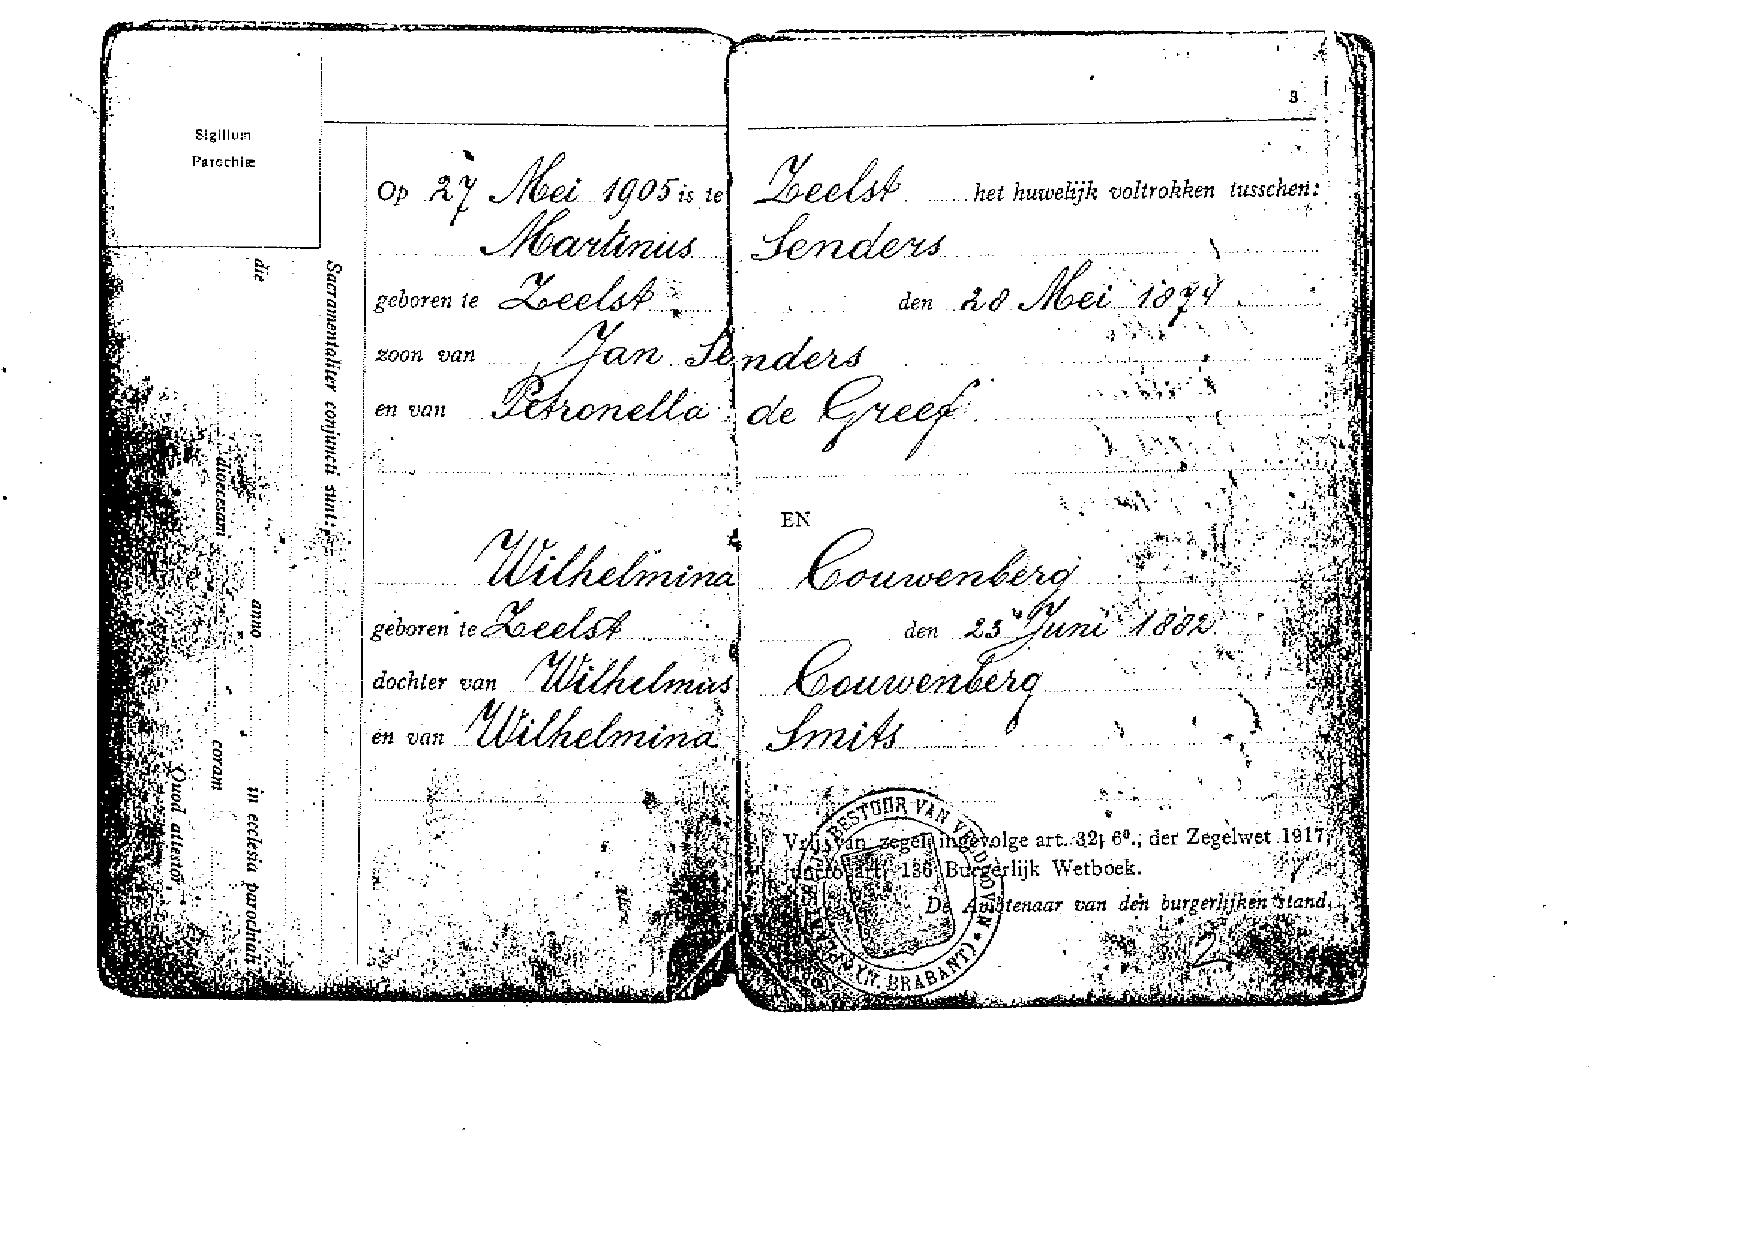 Sigillum
Parochiæ
Sacramentaliter conjuncti sunt:
die anno in ecclesia parochiali
dioecesan coram
Quod attestor,
3
Op 27 Mei 1905 is te Zeelst het huwelijk voltrokken tusschen:
Martinus Senders
geboren te Zeelst den 28 Mei 1874
zoon van Jan Senders
en van Petronella de Greef
EN
Wilhelmina Couwenberg
geboren te Zeelst den 23 Juni 1882
dochter van Wilhelmus Couwenberg
en van Wilhelmina Smits
Vrij van zegel ingevolge art. 32, 6º., der Zegelwet 1917,
juncto art. 136 Burgerlijk Wetboek.
De Ambtenaar van den burgerlijken stand,
BESTUUR VAN VELDHOVEN (N. BRABANT)
2